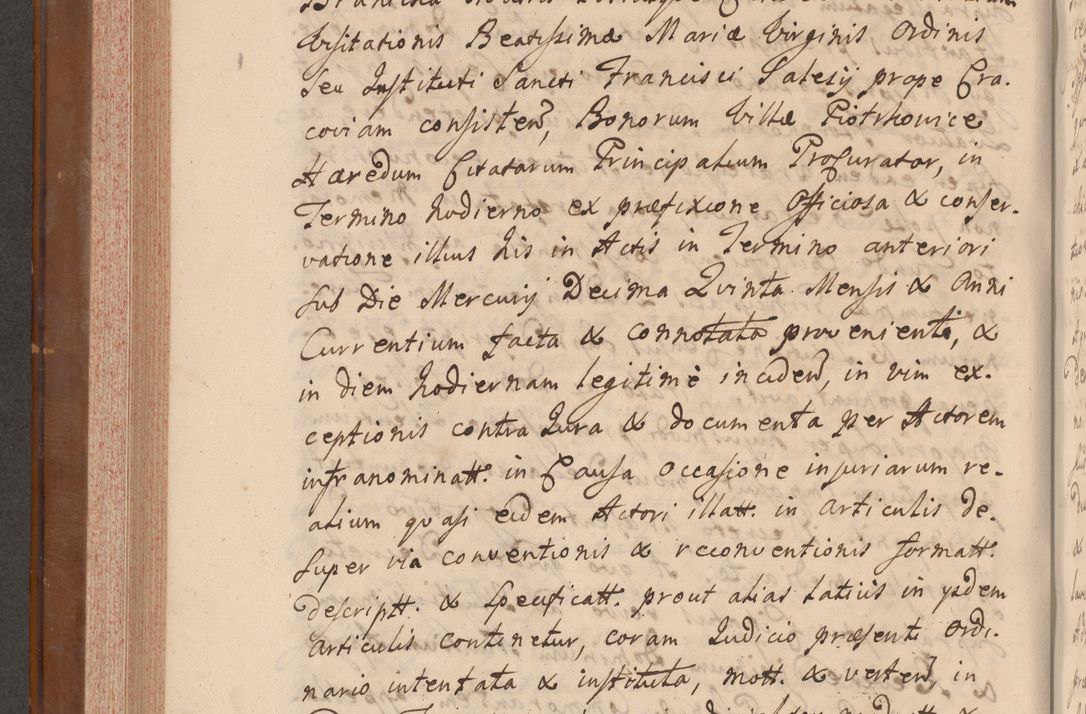 Visitationis Beatissimæ Mariæ Virginis Ordinis
Seu Instituti Sancti Francisci Salesij prope Cra-
coviam consisten͠, Bonorum Villæ Piotrkowice
Hæredum Citatarum Principalium Procurator, in
Termino hodierno ex præfixione Officiosa & conser-
vatione illius his in Actis in Termino anteriori
sub Die Mercurij Decima Quinta Mensis & Anni
Currentium facta & connotata provenienti, &
in diem hodiernam legitimè inciden͠, in vim ex-
ceptionis contra Jura & documenta per Actorem
infranominatt. in Causa occasione injuriarum re-
alium quasi eidem Actori illatt. in articulis de-
super via conventionis & reconventionis formatt.
descriptt. & specificatt. prout alias latiùs in ysdem
articulis continetur, coram Judicio præsenti Ordi-
nario intentata & instituta, mott. & verten͠, in